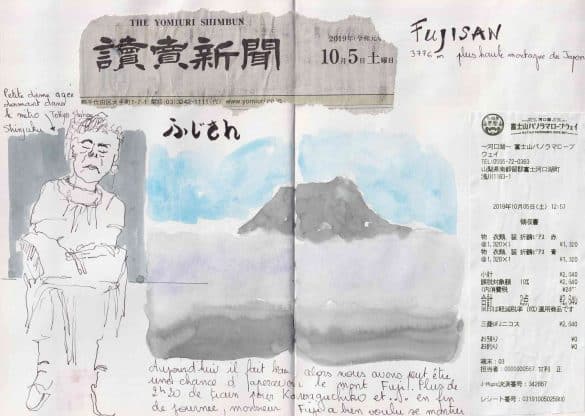 THE YOMIURI SHIMBUN
讀賣新聞
2019年(令和元年)
10月5日土曜日
www.yomiuri.co.jp
FUJISAN
3776 m plus haute montagne du Japon
Petite dame agée
dormant dans
le métro
Shinjuku
ふじさん
富士山パノラマロープ
ウェイ
～河口湖～ 富士山パノラマロープ
ウェイ
TEL:0555-72-0363
山梨県南都留郡富士河口湖町
浅川1163-1
2019年10月05日(土) 12:57
領収書
物 衣類、装 折鶴ピアス 赤
@1,320×1 ¥1,320
物 衣類、装 折鶴ピアス 青
@1,320×1 ¥1,320
小計 ¥2,640
課税対象額 10% ¥2,640
(内消費税
合計 2点 ¥2,640
※印は軽減税率(8%)適用商品です
三菱UFJニコス ¥2,640
お預り ¥0
お釣り ¥0
端末:03
担当者:
レシート番号:
Aujourd'hui il fait beau, alors nous avons peut être
une chance d'apercevoir le mont Fuji. Plus de
2h30 de train pour Kawaguchiko et... en fin
de journée, monsieur Fuji a bien voulu se montrer